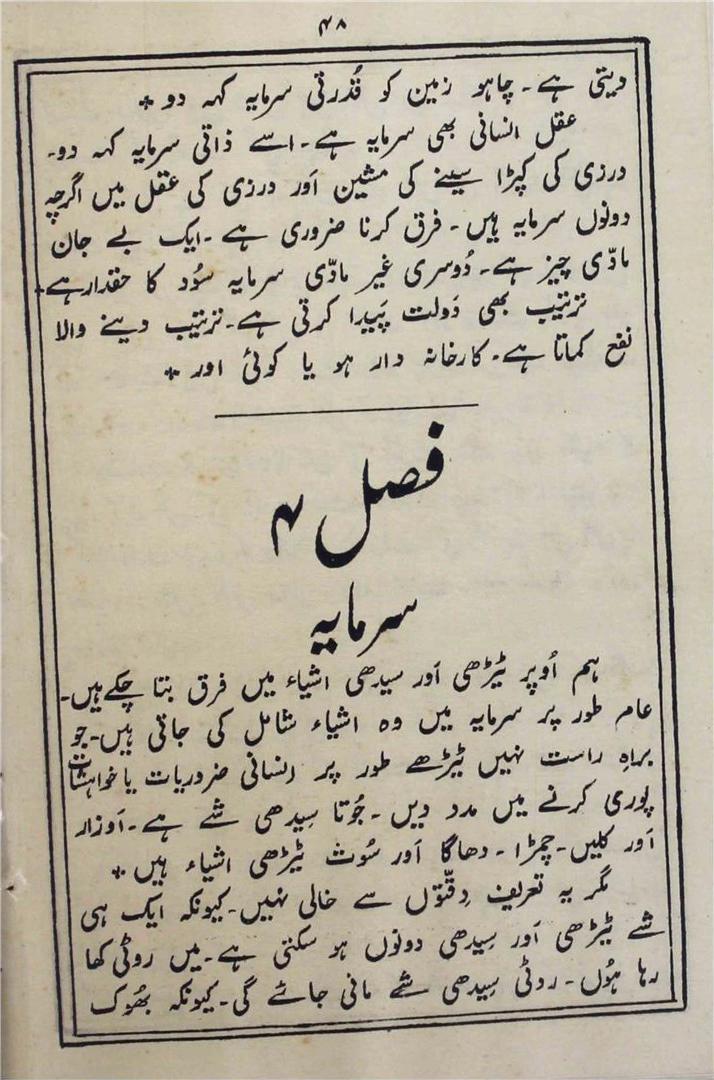 ۴۸
دیتی ہے۔ چاہو زمین کو قُدرتی سرمایہ کہہ دو *
عقل انسانی بھی سرمایہ ہے۔ اسے ذاتی سرمایہ کہہ دو۔
درزی کی کپڑا سینے کی مشین اَور درزی کی عقل میں اگرچہ
دونوں سرمایہ ہیں۔ فرق کرنا ضروری ہے ۔ ایک بے جان
مادّی چیز ہے۔ دُوسری غیر مادّی سرمایہ سُود کا حقدار ہے۔
ترتیب بھی دَولت پَیدا کرتی ہے۔ ترتیب دینے والا
نفع کماتا ہے۔ کارخانہ دار ہو یا کوئی اور *
فصل ۴
سرمایہ
ہم اُوپر ٹیڑھی اَور سیدھی اشیاء میں فرق بتا چکے ہیں۔
عام طور پر سرمایہ میں وہ اشیاء شامل کی جاتی ہیں۔ جو
براہِ راست نہیں ٹیڑھے طور پر انسانی ضروریات یا خواہشات
پوری کرنے میں مدد دیں ۔ جُوتا سِیدھی شے ہے۔ اَوزار
اَور کلیں۔ چمڑا ۔ دھاگا اَور سُوت ٹیڑھی اشیاء ہیں *
مگر یہ تعریف دِقّتوں سے خالی نہیں۔ کیونکہ ایک ہی
شے ٹیڑھی اَور سِیدھی دونوں ہو سکتی ہے۔ میں روٹی کھا
رہا ہُوں۔ روٹی سِیدھی شے مانی جائے گی۔ کیونکہ بھُوک